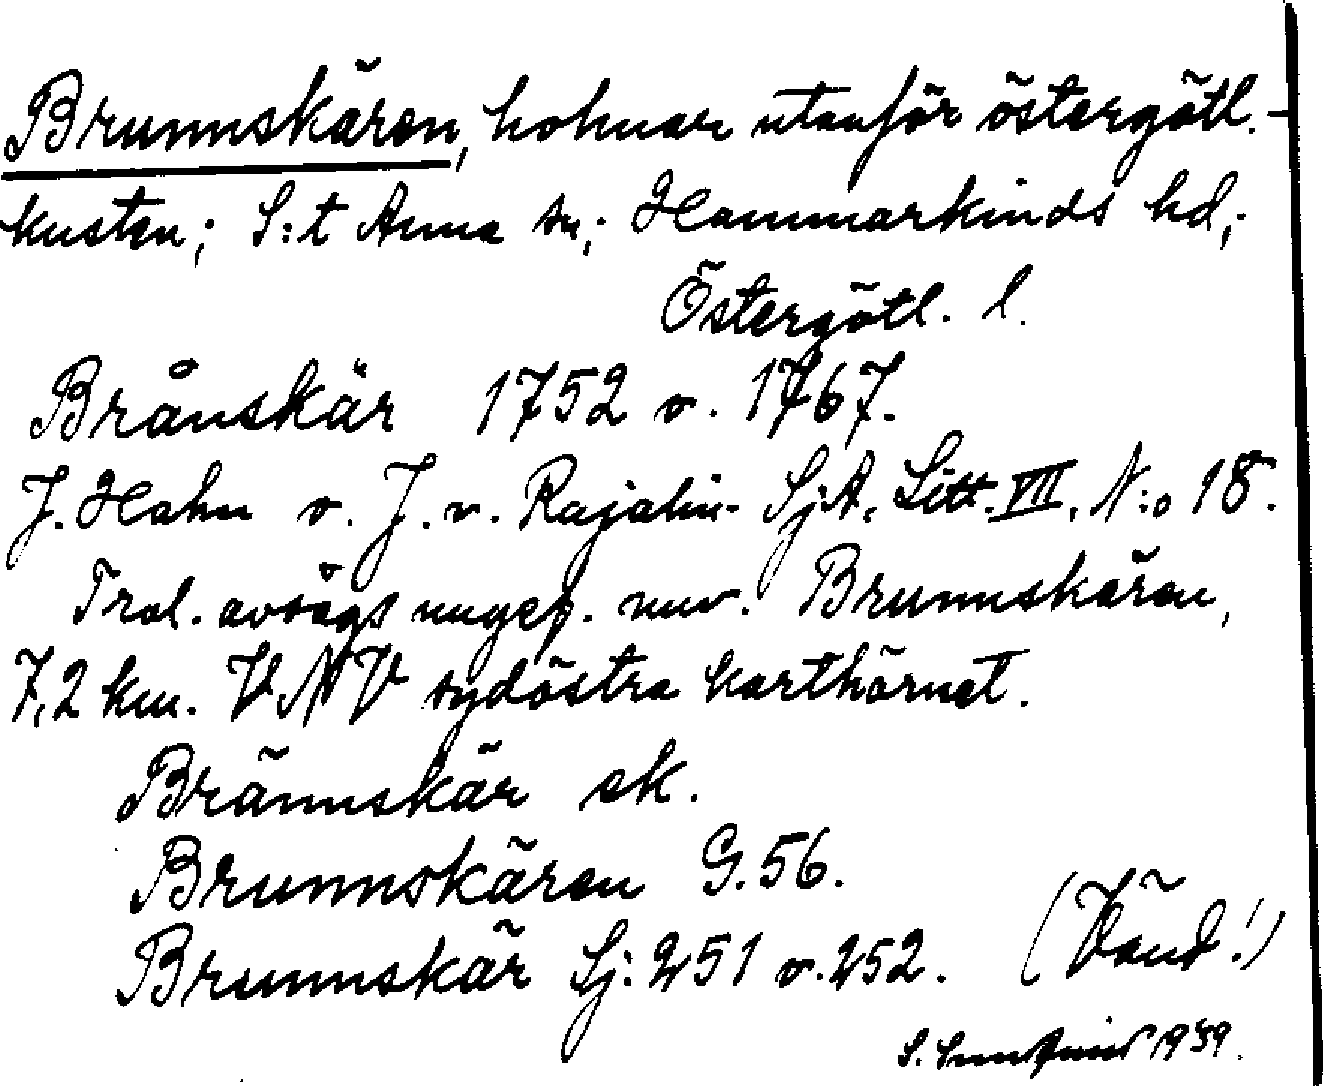 Brunnskären, holmar utanför östergötl.-
kusten; S:t Anna sn; Hammarkinds hd;
Östergötl. l.
Brånskär 1752 o. 1767.
J. Hahn o. J. v. Rajalin. SjA. Litt. VIII. N:o 18.
Trol. avsågs ungef. nuv. Brunnskären,
7,2 km. VNV sydöstra karthörnet.
Brännskär ek.
Brunnskären G. 56.
Brunnskär Sj: 251 o. 252. (Vänd!)
S. 1939.